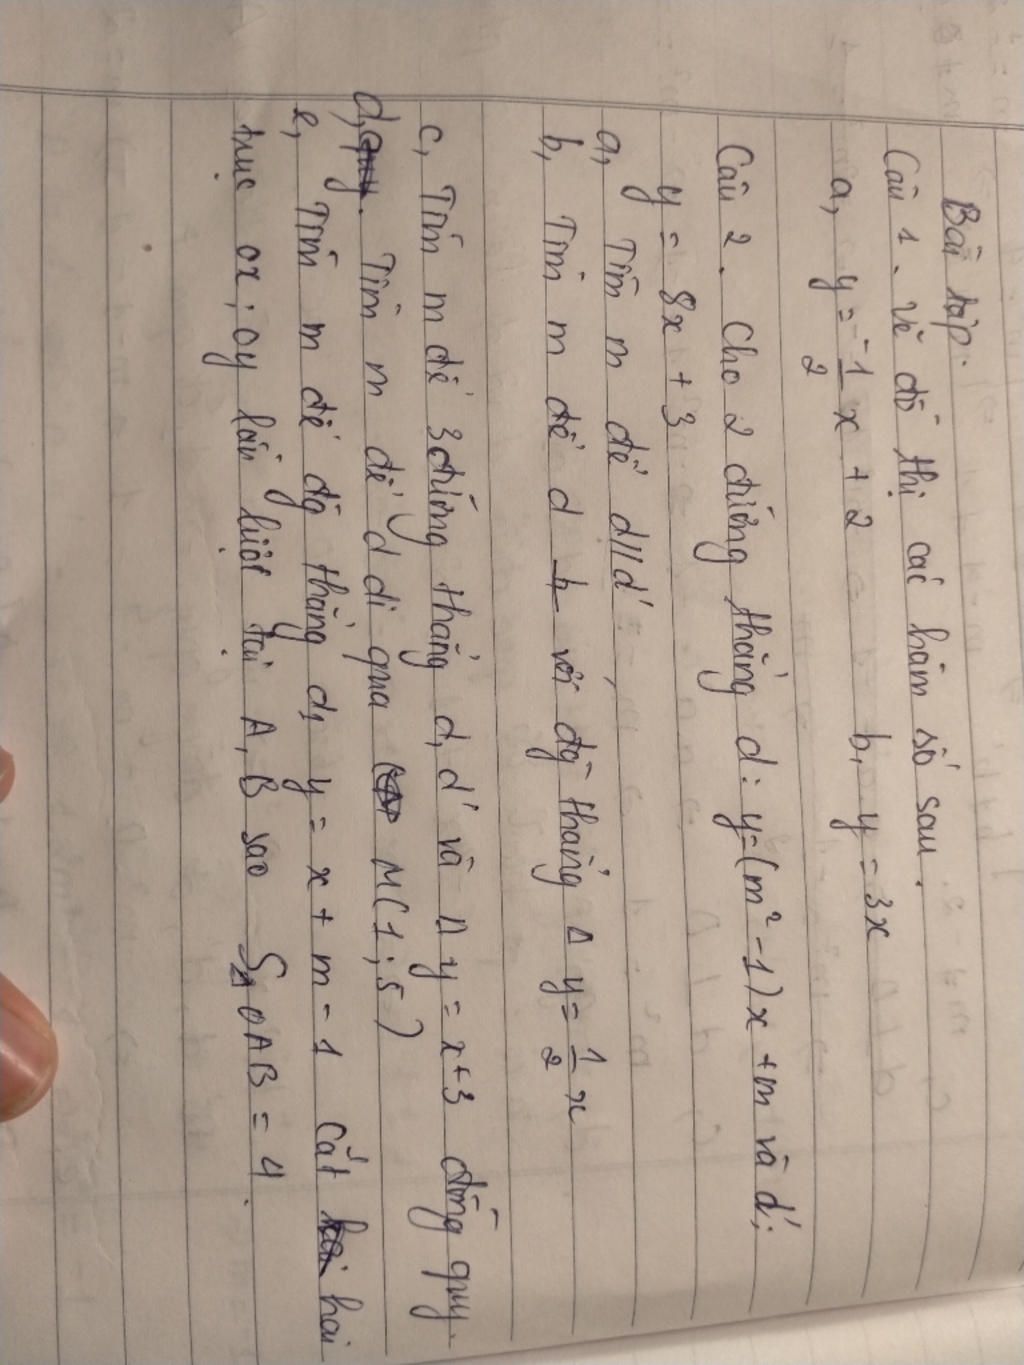 Bài tập.
Câu 1. Vẽ đồ thị các hàm số sau.
a, y = -1/2 x + 2 b, y = 3x
Câu 2. Cho 2 đường thẳng d: y=(m² -1)x +m và d';
y = 8x + 3
a, Tìm m để d//d'
b, Tìm m để d ⊥ với đg thẳng Δ y= 1/2 x
c, Tìm m để 3 đường thẳng d, d' và Δ y = x+3 đồng quy.
d, Tìm m để d đi qua M(1; 5)
e, Tìm m để đg thẳng d, y = x + m - 1 cắt hai
trục ox; oy lần lượt tại A, B sao SΔOAB = 4.